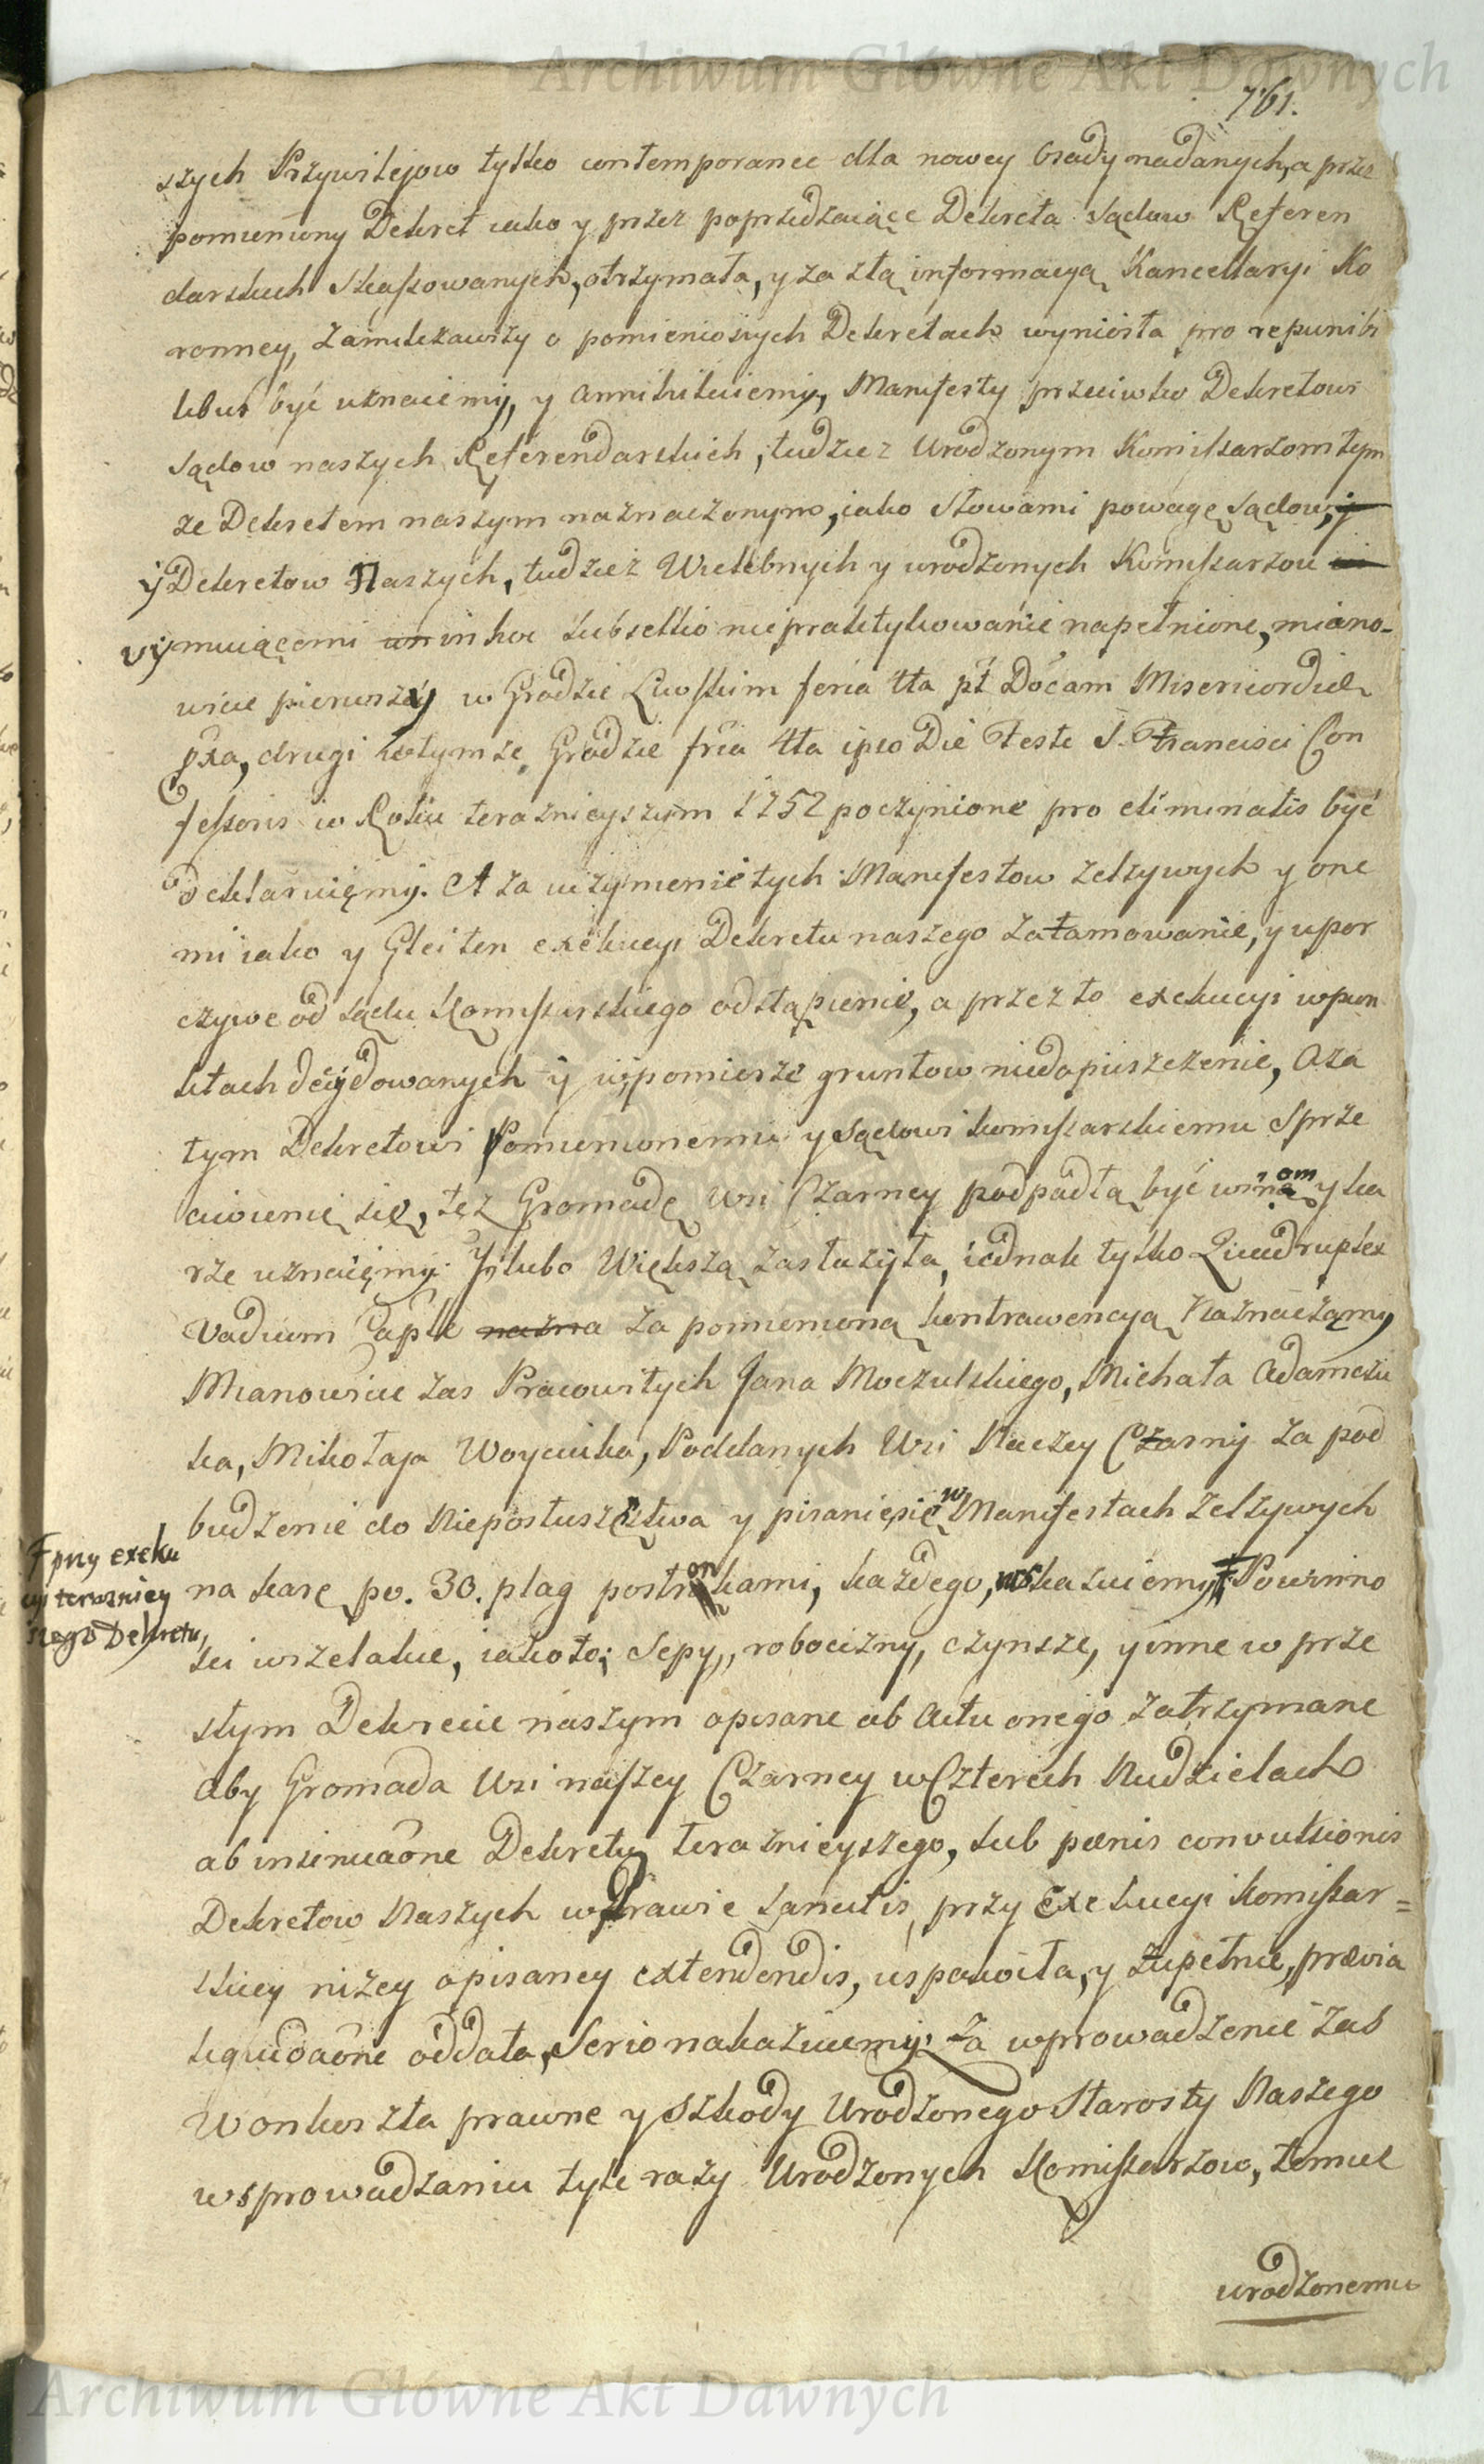 Archiwum Główne Akt Dawnych
761.
szych Przywilejow tylko contemporanee dla nowey Osady nadanych, a przez
pomieniony Dekret iako y przez poprzedzaiące Dekreta Sądow Referen
darskich skassowanych, otrzymała, y za złą informacyą Kancellaryi Ko
ronney, zamilczawszy o pomienionych Dekretach wyniosła pro repunibi
libus być uznaiemy, y annihiluiemy, Manifesty przeciwko Dekretowi
Sądow naszych Referendarskich, tudziez Urodzonym Komissarzom tym
ze Dekretem naszym naznaczonym, iako słowami powagę Sądow, y
ÿ Dekretow Naszych, tudziez Wielebnych y urodzonych Komissarzow
uymuiącemi in hoc subsellio niepraktykowanie napełnione, miano-
wicie pierwszy w Grodzie Liwskim feria 4ta pt Dőcam Misericordiæ
pxa, drugi wtymze Grodzie fria 4ta ipso Die Feste S. Francisci Con
fessoris w Roku teraznieyszym 1752 poczynione pro eliminatis być
deklaruięmy. A za uczynienie tych Manifestow zelzywych y one
mi iako y Gleiten exekucyi Dekretu naszego zatamowanie, y upor
czywe od sądu Komissarskiego odstąpienie, a przez to exekucyi wpun
ktach decÿdowanych ÿ wpomierze gruntow niedopuszczenie, aza
tym Dekretowi Pomienionemu y Sądowi komissarskiemu sprze
ciwienie się, tęz Gromadę Wsi Czarney podpadłą być winom y ka
rze uznaięmy. Y lubo Większą zasłuzyła, iednak tylko Quadruplex
Vadium Capłe nazna za pomienioną kontrawencyą Naznaczamy,
Mianowicie zas Pracowitych Jana Moczulskiego, Michała Adamczu
ka, Mikołaja Woyciuka, Poddanych Wsi Naszey Czarny za pod
budzenie do Nieposłuszęstwa y pisaniesię w Manifestach zelzywych
na karę po. 30. plag postronkami, kazdego, wskazuiemy, Ŧ Powinno
Ŧ przy exeku
cyi terazniey
szego Dekretu,
sci wszelakie, iakoto; Sepy, robocizny, czynsze, y inne w prze
szłym Dekrecie naszym opisane ab Actu onego zatrzymane
aby Gromada Wsi naszey Czarney w Czterech Niedzielach
ab insinuaőne Dekretu teraznieyszego, sub pœnis convulsionis
Dekretow Naszych w Prawie sancitis, przy Exekucyi komissar=
skiey nizey opisaney extendendis, uspokoiła, y zupełnie, prævia
liquidaőne oddała, Serio nakazuiemy. Za wprowadzenie zas
Wonkoszta prawne y szkody Urodzonego Starosty Naszego
w sprowadzaniu tyle razy Urodzonych Komissarzow, temuz
urodzonemu
Archiwum Główne Akt Dawnych